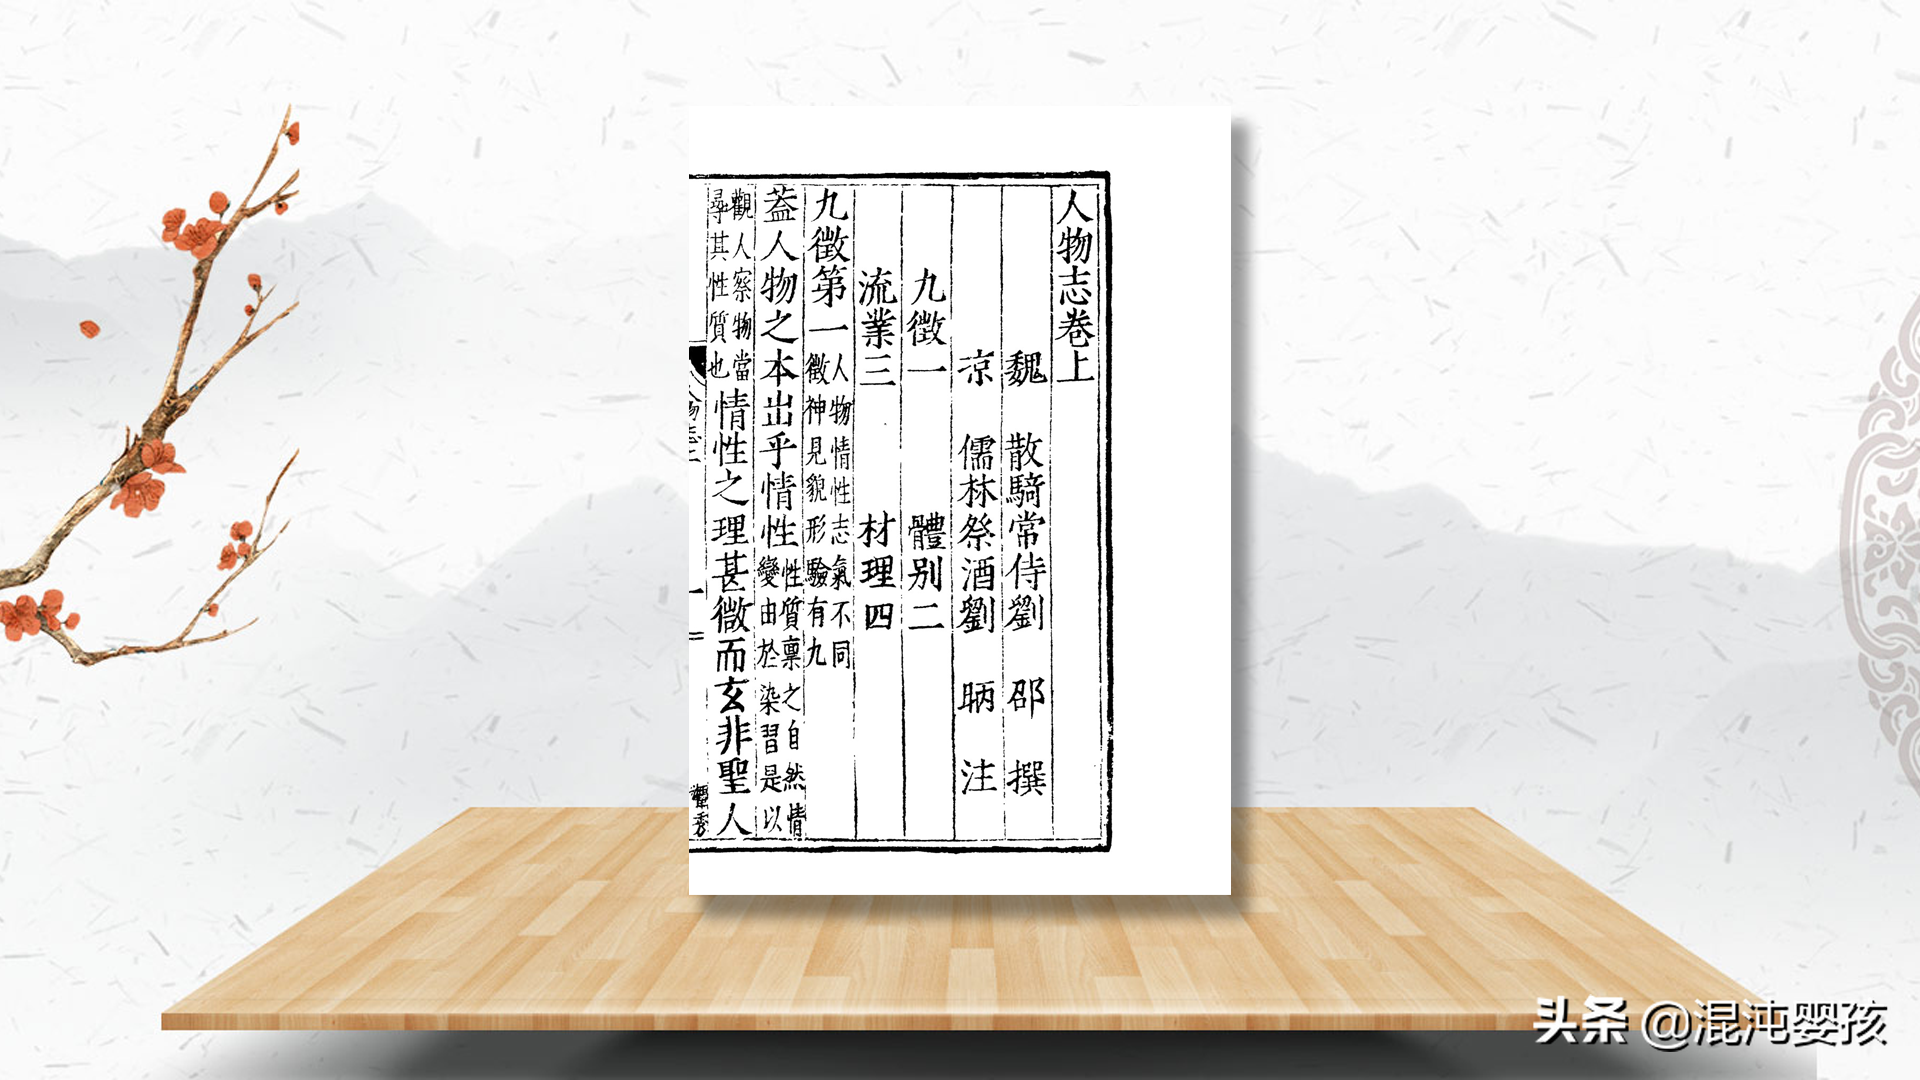 人物志卷上
魏 散騎常侍劉 邵 撰
凉 儒林祭酒劉 昞 注
九徵一 體别二
流業三 材理四
九徵第一 人物情性志氣不同
徵神見貌形驗有九
葢人物之本出乎情性 性質禀之自然情
變由於染習是以
觀人察物當
尋其性質也 情性之理甚微而玄非聖人
头条 @混沌婴孩